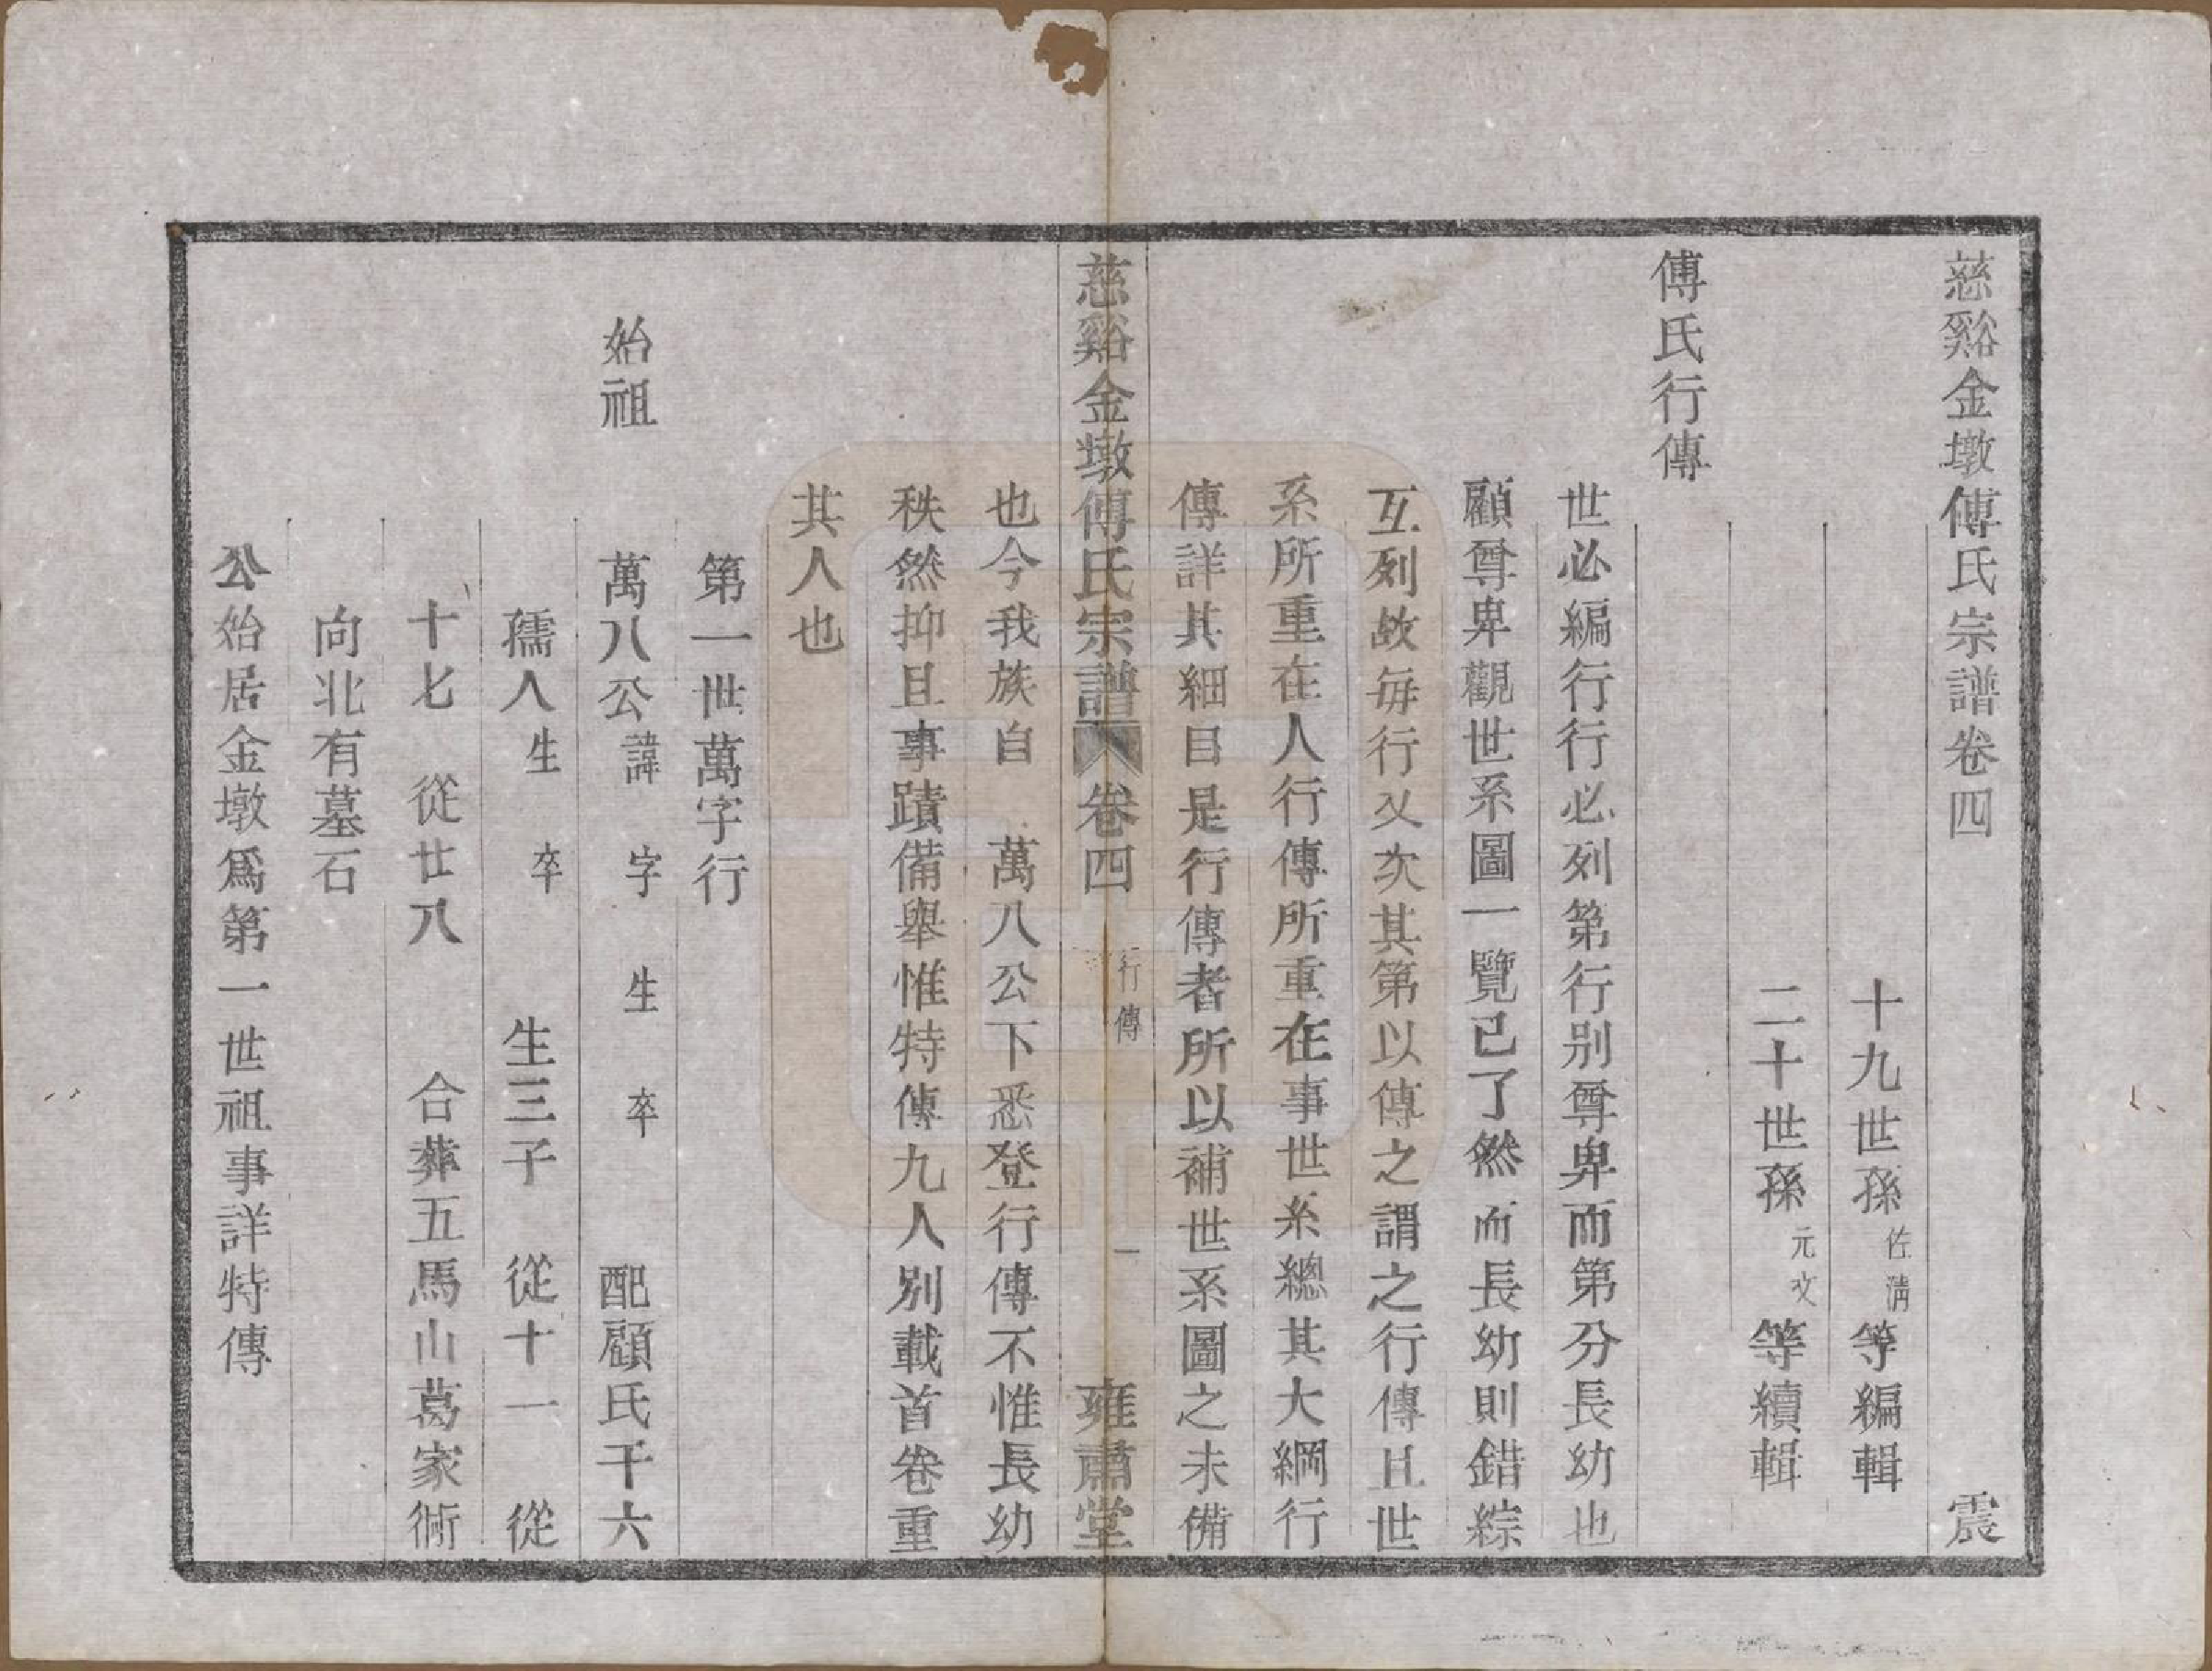 慈谿金墩傅氏宗譜卷四 震
十九世孫佐清等編輯
二十世孫元文等續輯
傅氏行傳
世必編行行必列第行别尊卑而第分長幼也
顧尊卑觀世系圖一覽已了然而長幼則錯綜
互列故每行又次其第以傳之謂之行傳且世
系所重在人行傳所重在事世系總其大綱行
傳詳其細目是行傳者所以補世系圖之未備
慈谿金墩傅氏宗譜 卷四 行傳 一 雍肅堂
也今我族自 萬八公下悉登行傳不惟長幼
秩然抑且事蹟備舉惟特傳九人別載首卷重
其人也
第一世萬字行
始祖 萬八公諱 字 生 卒 配顧氏千六
孺人生 卒 生三子 從十一 從
十七 從廿八 合葬五馬山葛家衕
向北有墓石
公始居金墩爲第一世祖事詳特傳